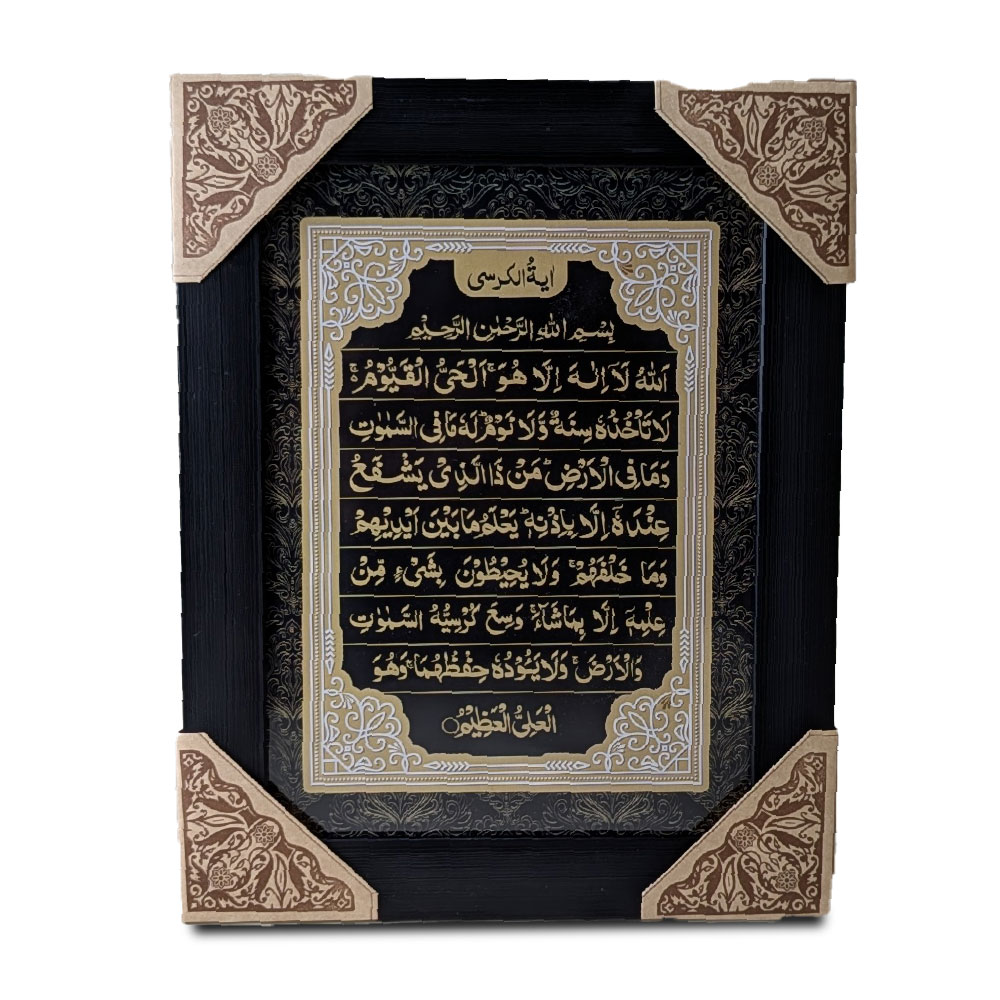 اية الكرسى
بِسْمِ اللهِ الرَّحْمٰنِ الرَّحِيْمِ
اَللهُ لَآ اِلٰهَ اِلَّا هُوَ ۚ اَلْحَىُّ الْقَيُّوْمُ ۚ
لَا تَاْخُذُهٗ سِنَةٌ وَّلَا نَوْمٌ ؕ لَهٗ مَا فِى السَّمٰوٰتِ
وَمَا فِى الْاَرْضِ ؕ مَنْ ذَا الَّذِىْ يَشْفَعُ
عِنْدَهٗٓ اِلَّا بِاِذْنِهٖ ؕ يَعْلَمُ مَا بَيْنَ اَيْدِيْهِمْ
وَمَا خَلْفَهُمْ ۚ وَلَا يُحِيْطُوْنَ بِشَىْءٍ مِّنْ
عِلْمِهٖٓ اِلَّا بِمَا شَآءَ ۚ وَسِعَ كُرْسِيُّهُ السَّمٰوٰتِ
وَالْاَرْضَ ۚ وَلَا يَـُٔوْدُهٗ حِفْظُهُمَا ۚ وَهُوَ
الْعَلِىُّ الْعَظِيْمُ ۝